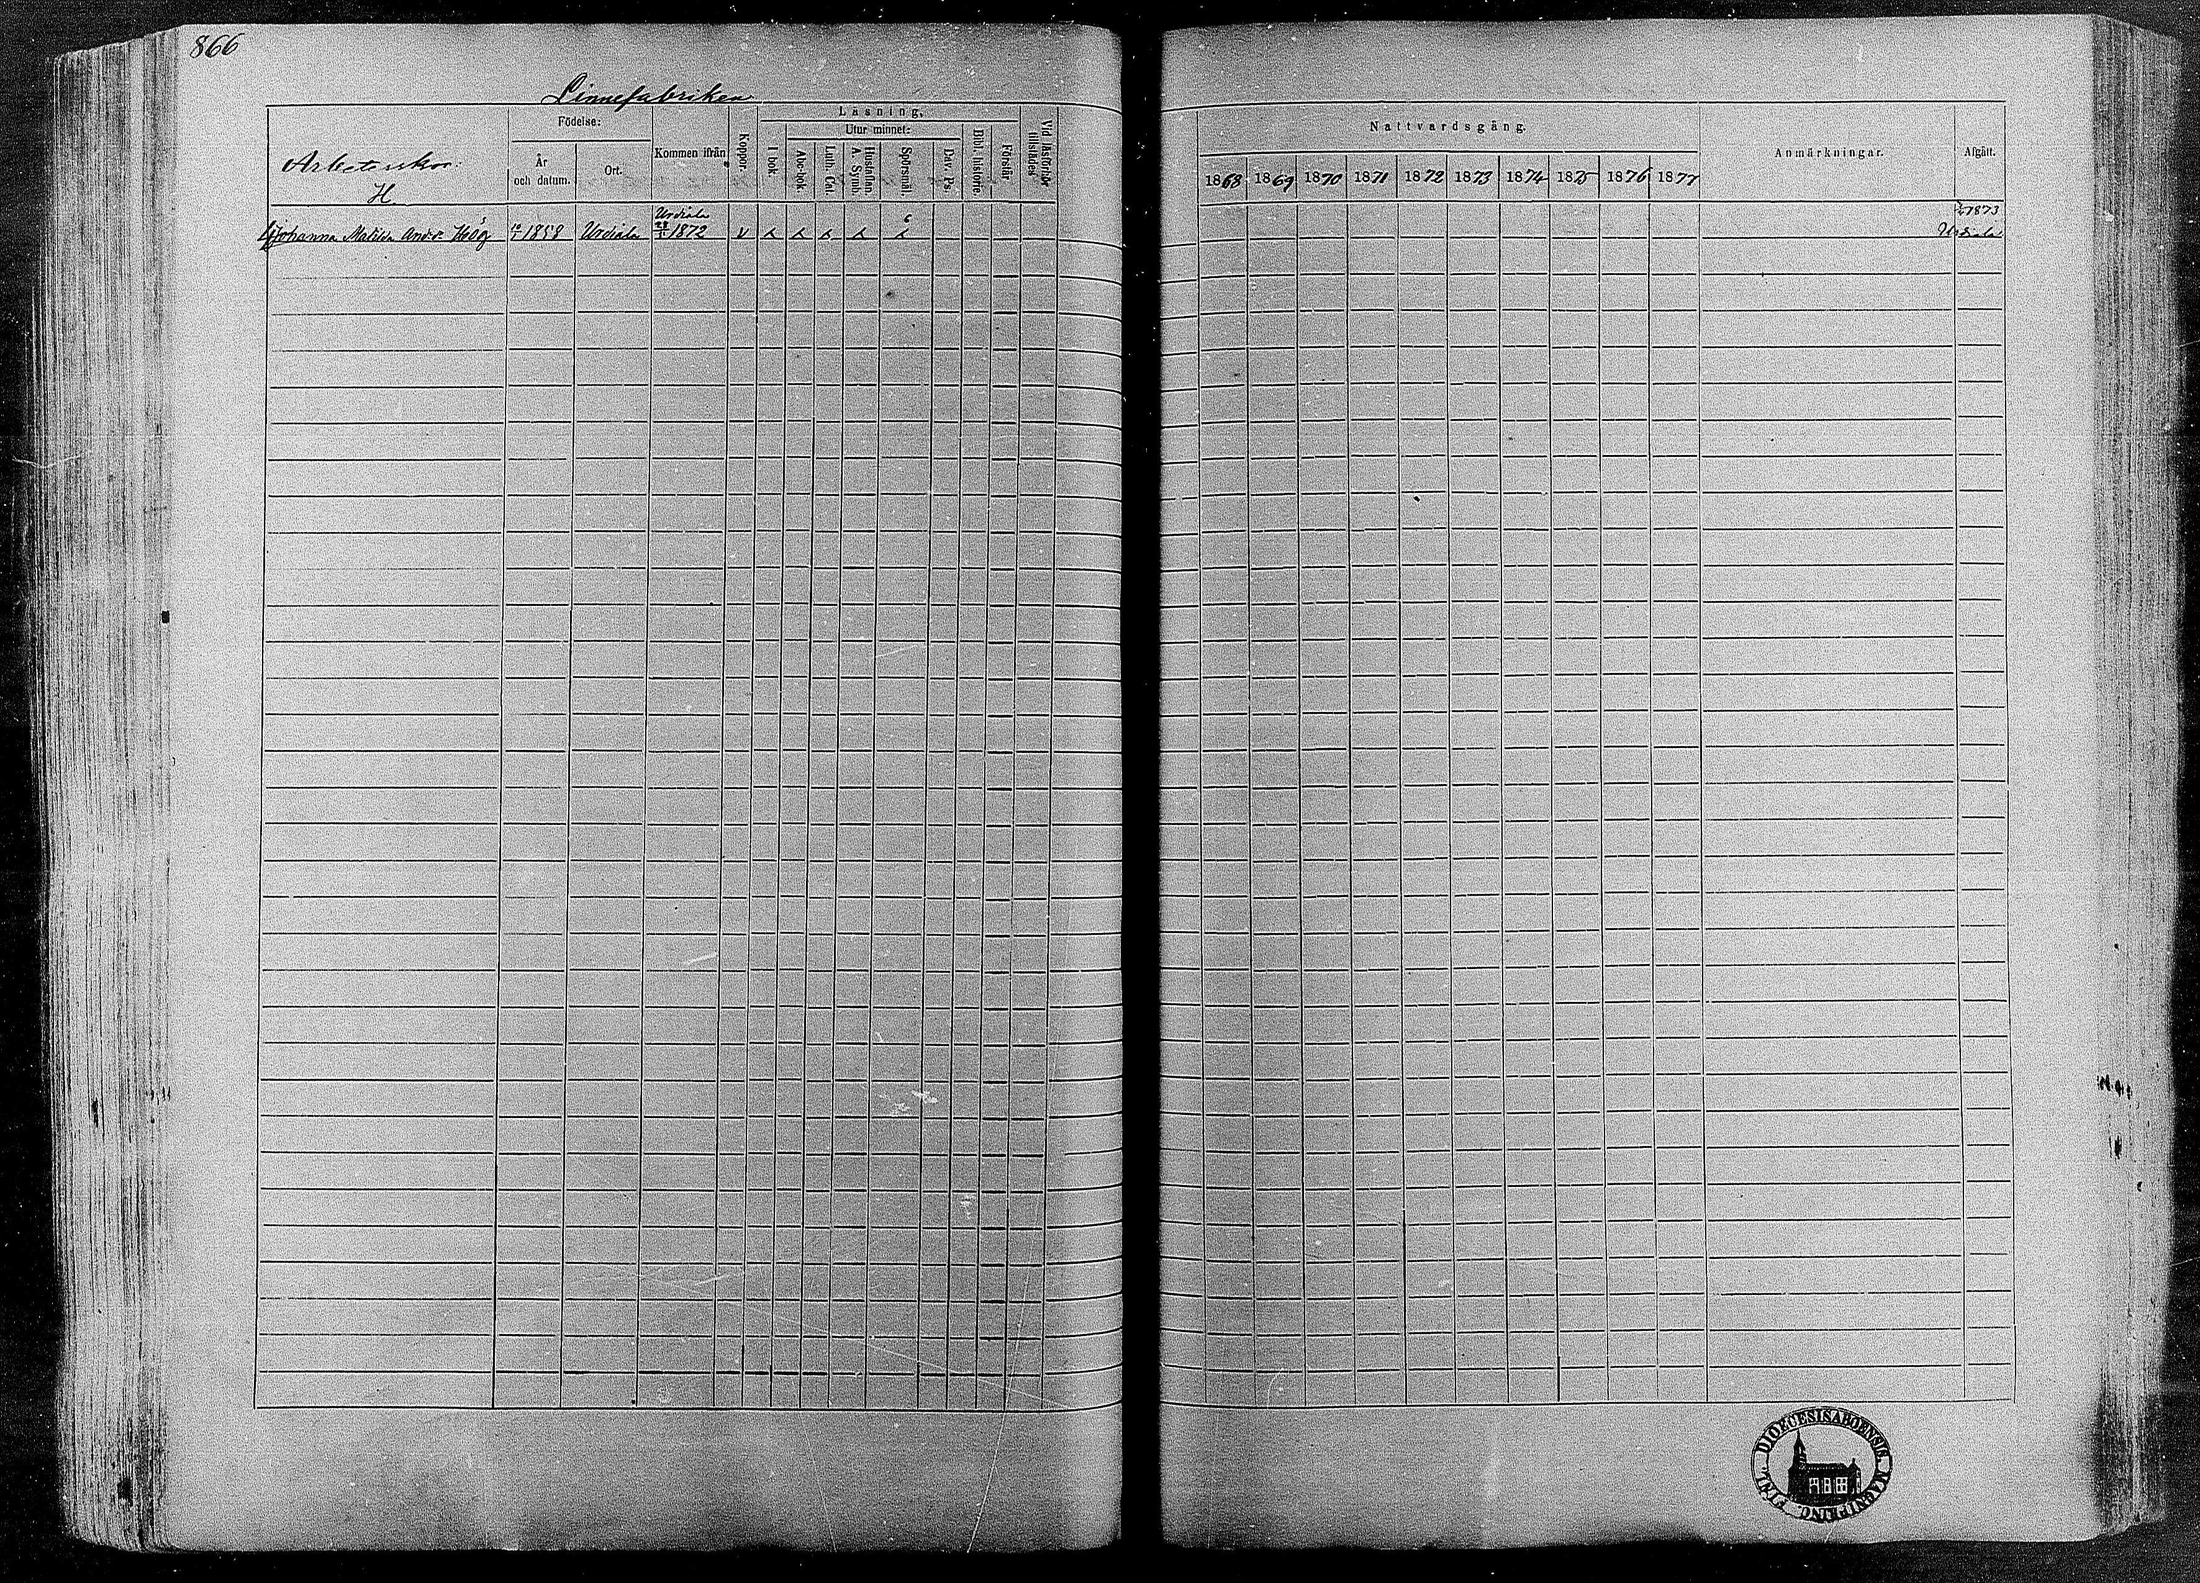 866
Linnefabriken
Arbeterskor:
H.
Födelse:
År och datum.
Ort.
Kommen ifrån
Koppor.
Läsning.
I bok.
Utur minnet:
Abc-bok
Luth. Cat.
Hustaflan, A. Symb.
Spörsmål.
Dav. Ps.
Bibl. historie.
Förstår.
Vid läsförhör tillstädes
Nattvardsgång.
1868 1869 1870 1871 1872 1873 1874 1875 1876 1877
Anmärkningar.
Afgått.
Urdiala 6 1873
Johanna Matilda And:r Höög 10/7 1858 Urdiala 1872 Urdiala
FINL. DIOECESIS ABOENSIS MAGNI PRINC.